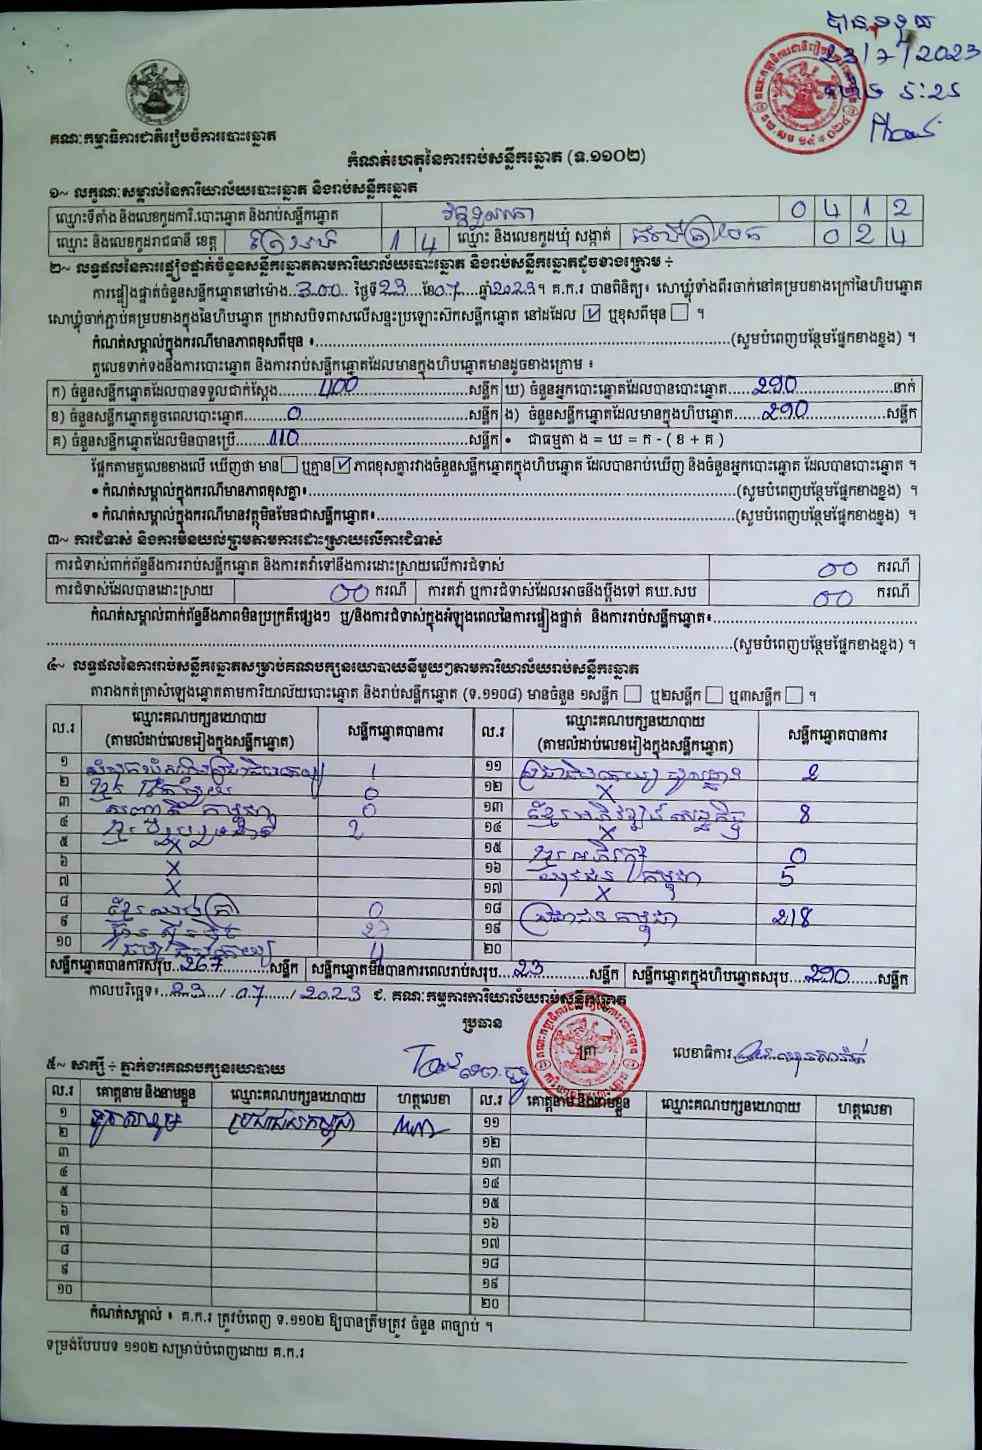 បានទទួល
23/7/2023
គណៈកម្មាធិការជាតិរៀបចំការបោះឆ្នោត
កំណត់ហេតុនៃការរាប់សន្លឹកឆ្នោត (ទ.១១០២)
១~ លក្ខណៈសម្គាល់នៃការិយាល័យបោះឆ្នោត និងរាប់សន្លឹកឆ្នោត
ឈ្មោះទីតាំង និងលេខកូដការិ.បោះឆ្នោត និងរាប់សន្លឹកឆ្នោត 0 4 1 2
ឈ្មោះ និងលេខកូដរាជធានី ខេត្ត ព្រៃវែង 1 4 ឈ្មោះ និងលេខកូដឃុំ សង្កាត់ 0 2 4
២~ លទ្ធផលនៃការផ្ទៀងផ្ទាត់ចំនួនសន្លឹកឆ្នោតតាមការិយាល័យបោះឆ្នោត និងរាប់សន្លឹកឆ្នោតដូចខាងក្រោម ÷
ការផ្ទៀងផ្ទាត់ចំនួនសន្លឹកឆ្នោតនៅម៉ោង..3.00.. ថ្ងៃទី23..ខែ07..ឆ្នាំ2023។ គ.ក.រ បានពិនិត្យ៖ សោឃ្លុំទាំងពីរចាក់នៅគម្របខាងក្រៅនៃហិបឆ្នោត
សោឃ្លុំចាក់ភ្ជាប់គម្របខាងក្នុងនៃហិបឆ្នោត ក្រដាសបិទពាសលើសន្ទះប្រឡោះស៊កសន្លឹកឆ្នោត នៅដដែល ☑ ឬខុសពីមុន ☐ ។
កំណត់សម្គាល់ក្នុងករណីមានភាពខុសពីមុន ៖..........(សូមបំពេញបន្ថែមផ្នែកខាងខ្នង) ។
តួលេខទាក់ទងនឹងការបោះឆ្នោត និងការរាប់សន្លឹកឆ្នោតដែលមានក្នុងហិបឆ្នោតមានដូចខាងក្រោម ៖
ក) ចំនួនសន្លឹកឆ្នោតដែលបានទទួលជាក់ស្តែង......400......សន្លឹក ឃ) ចំនួនអ្នកបោះឆ្នោតដែលបានបោះឆ្នោត......290......នាក់
ខ) ចំនួនសន្លឹកឆ្នោតខូចពេលបោះឆ្នោត......0......សន្លឹក ង) ចំនួនសន្លឹកឆ្នោតដែលមានក្នុងហិបឆ្នោត......290......សន្លឹក
គ) ចំនួនសន្លឹកឆ្នោតដែលមិនបានប្រើ......110......សន្លឹក • ជាធម្មតា ង = ឃ = ក - ( ខ + គ )
ផ្អែកតាមតួលេខខាងលើ ឃើញថា មាន☐ ឬគ្មាន☑ ភាពខុសគ្នារវាងចំនួនសន្លឹកឆ្នោតក្នុងហិបឆ្នោត ដែលបានរាប់ឃើញ និងចំនួនអ្នកបោះឆ្នោត ដែលបានបោះឆ្នោត ។
• កំណត់សម្គាល់ក្នុងករណីមានភាពខុសគ្នា៖..........(សូមបំពេញបន្ថែមផ្នែកខាងខ្នង) ។
• កំណត់សម្គាល់ក្នុងករណីមានវត្ថុមិនមែនជាសន្លឹកឆ្នោត៖..........(សូមបំពេញបន្ថែមផ្នែកខាងខ្នង) ។
៣~ ការជំទាស់ និងការមិនយល់ព្រមតាមការដោះស្រាយលើការជំទាស់
ការជំទាស់ពាក់ព័ន្ធនឹងការរាប់សន្លឹកឆ្នោត និងការតវ៉ាទៅនឹងការដោះស្រាយលើការជំទាស់ 00 ករណី
ការជំទាស់ដែលបានដោះស្រាយ 00 ករណី ការតវ៉ា ឬការជំទាស់ដែលអាចនឹងប្តឹងទៅ គឃ.សប 00 ករណី
កំណត់សម្គាល់ពាក់ព័ន្ធនឹងភាពមិនប្រក្រតីផ្សេងៗ ឬ/និងការជំទាស់ក្នុងអំឡុងពេលនៃការផ្ទៀងផ្ទាត់ និងការរាប់សន្លឹកឆ្នោត៖..........
..........(សូមបំពេញបន្ថែមផ្នែកខាងខ្នង) ។
៤~ លទ្ធផលនៃការរាប់សន្លឹកឆ្នោតសម្រាប់គណបក្សនយោបាយនីមួយៗតាមការិយាល័យរាប់សន្លឹកឆ្នោត
តារាងកត់ត្រាសំឡេងឆ្នោតតាមការិយាល័យបោះឆ្នោត និងរាប់សន្លឹកឆ្នោត (ទ.១១០៨) មានចំនួន ១សន្លឹក ☐ ឬ២សន្លឹក ☐ ឬ៣សន្លឹក ☐ ។
ល.រ ឈ្មោះគណបក្សនយោបាយ (តាមលំដាប់លេខរៀងក្នុងសន្លឹកឆ្នោត) សន្លឹកឆ្នោតបានការ ល.រ ឈ្មោះគណបក្សនយោបាយ (តាមលំដាប់លេខរៀងក្នុងសន្លឹកឆ្នោត) សន្លឹកឆ្នោតបានការ
១ 1 ១១ 2
២ 0 ១២ X
៣ 0 ១៣ 8
៤ 2 ១៤ X
៥ X ១៥ 0
៦ X ១៦ កម្ពុជា 5
៧ X ១៧ X
៨ 0 ១៨ ប្រជាជន កម្ពុជា 218
៩ 27 ១៩
១០ 4 ២០
សន្លឹកឆ្នោតបានការសរុប..267......សន្លឹក សន្លឹកឆ្នោតមិនបានការពេលរាប់សរុប...23......សន្លឹក សន្លឹកឆ្នោតក្នុងហិបឆ្នោតសរុប...290......សន្លឹក
កាលបរិច្ឆេទ៖..23../.07../2023 ជ. គណៈកម្មការការិយាល័យរាប់សន្លឹកឆ្នោត
ប្រធាន
លេខាធិការ
៥~ សាក្សី ÷ ភ្នាក់ងារគណបក្សនយោបាយ
ល.រ គោត្តនាម និងនាមខ្លួន ឈ្មោះគណបក្សនយោបាយ ហត្ថលេខា ល.រ គោត្តនាម និងនាមខ្លួន ឈ្មោះគណបក្សនយោបាយ ហត្ថលេខា
១ ប្រជាជនកម្ពុជា ១១
២ ១២
៣ ១៣
៤ ១៤
៥ ១៥
៦ ១៦
៧ ១៧
៨ ១៨
៩ ១៩
១០ ២០
កំណត់សម្គាល់ ៖ គ.ក.រ ត្រូវបំពេញ ទ.១១០២ ឱ្យបានត្រឹមត្រូវ ចំនួន ៣ច្បាប់ ។
ទម្រង់បែបបទ ១១០២ សម្រាប់បំពេញដោយ គ.ក.រ